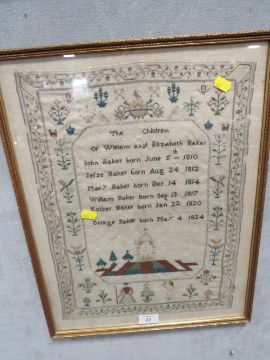 The Children
Of William and Elizebeth Baker
John Baker born June 5th 1810
Jesse Baker born Aug 24 1812
Mary Baker born Dec 14 1814
William Baker born Sep 13 1817
Esther Baker born Jan 23 1820
George Baker born May 4 1824